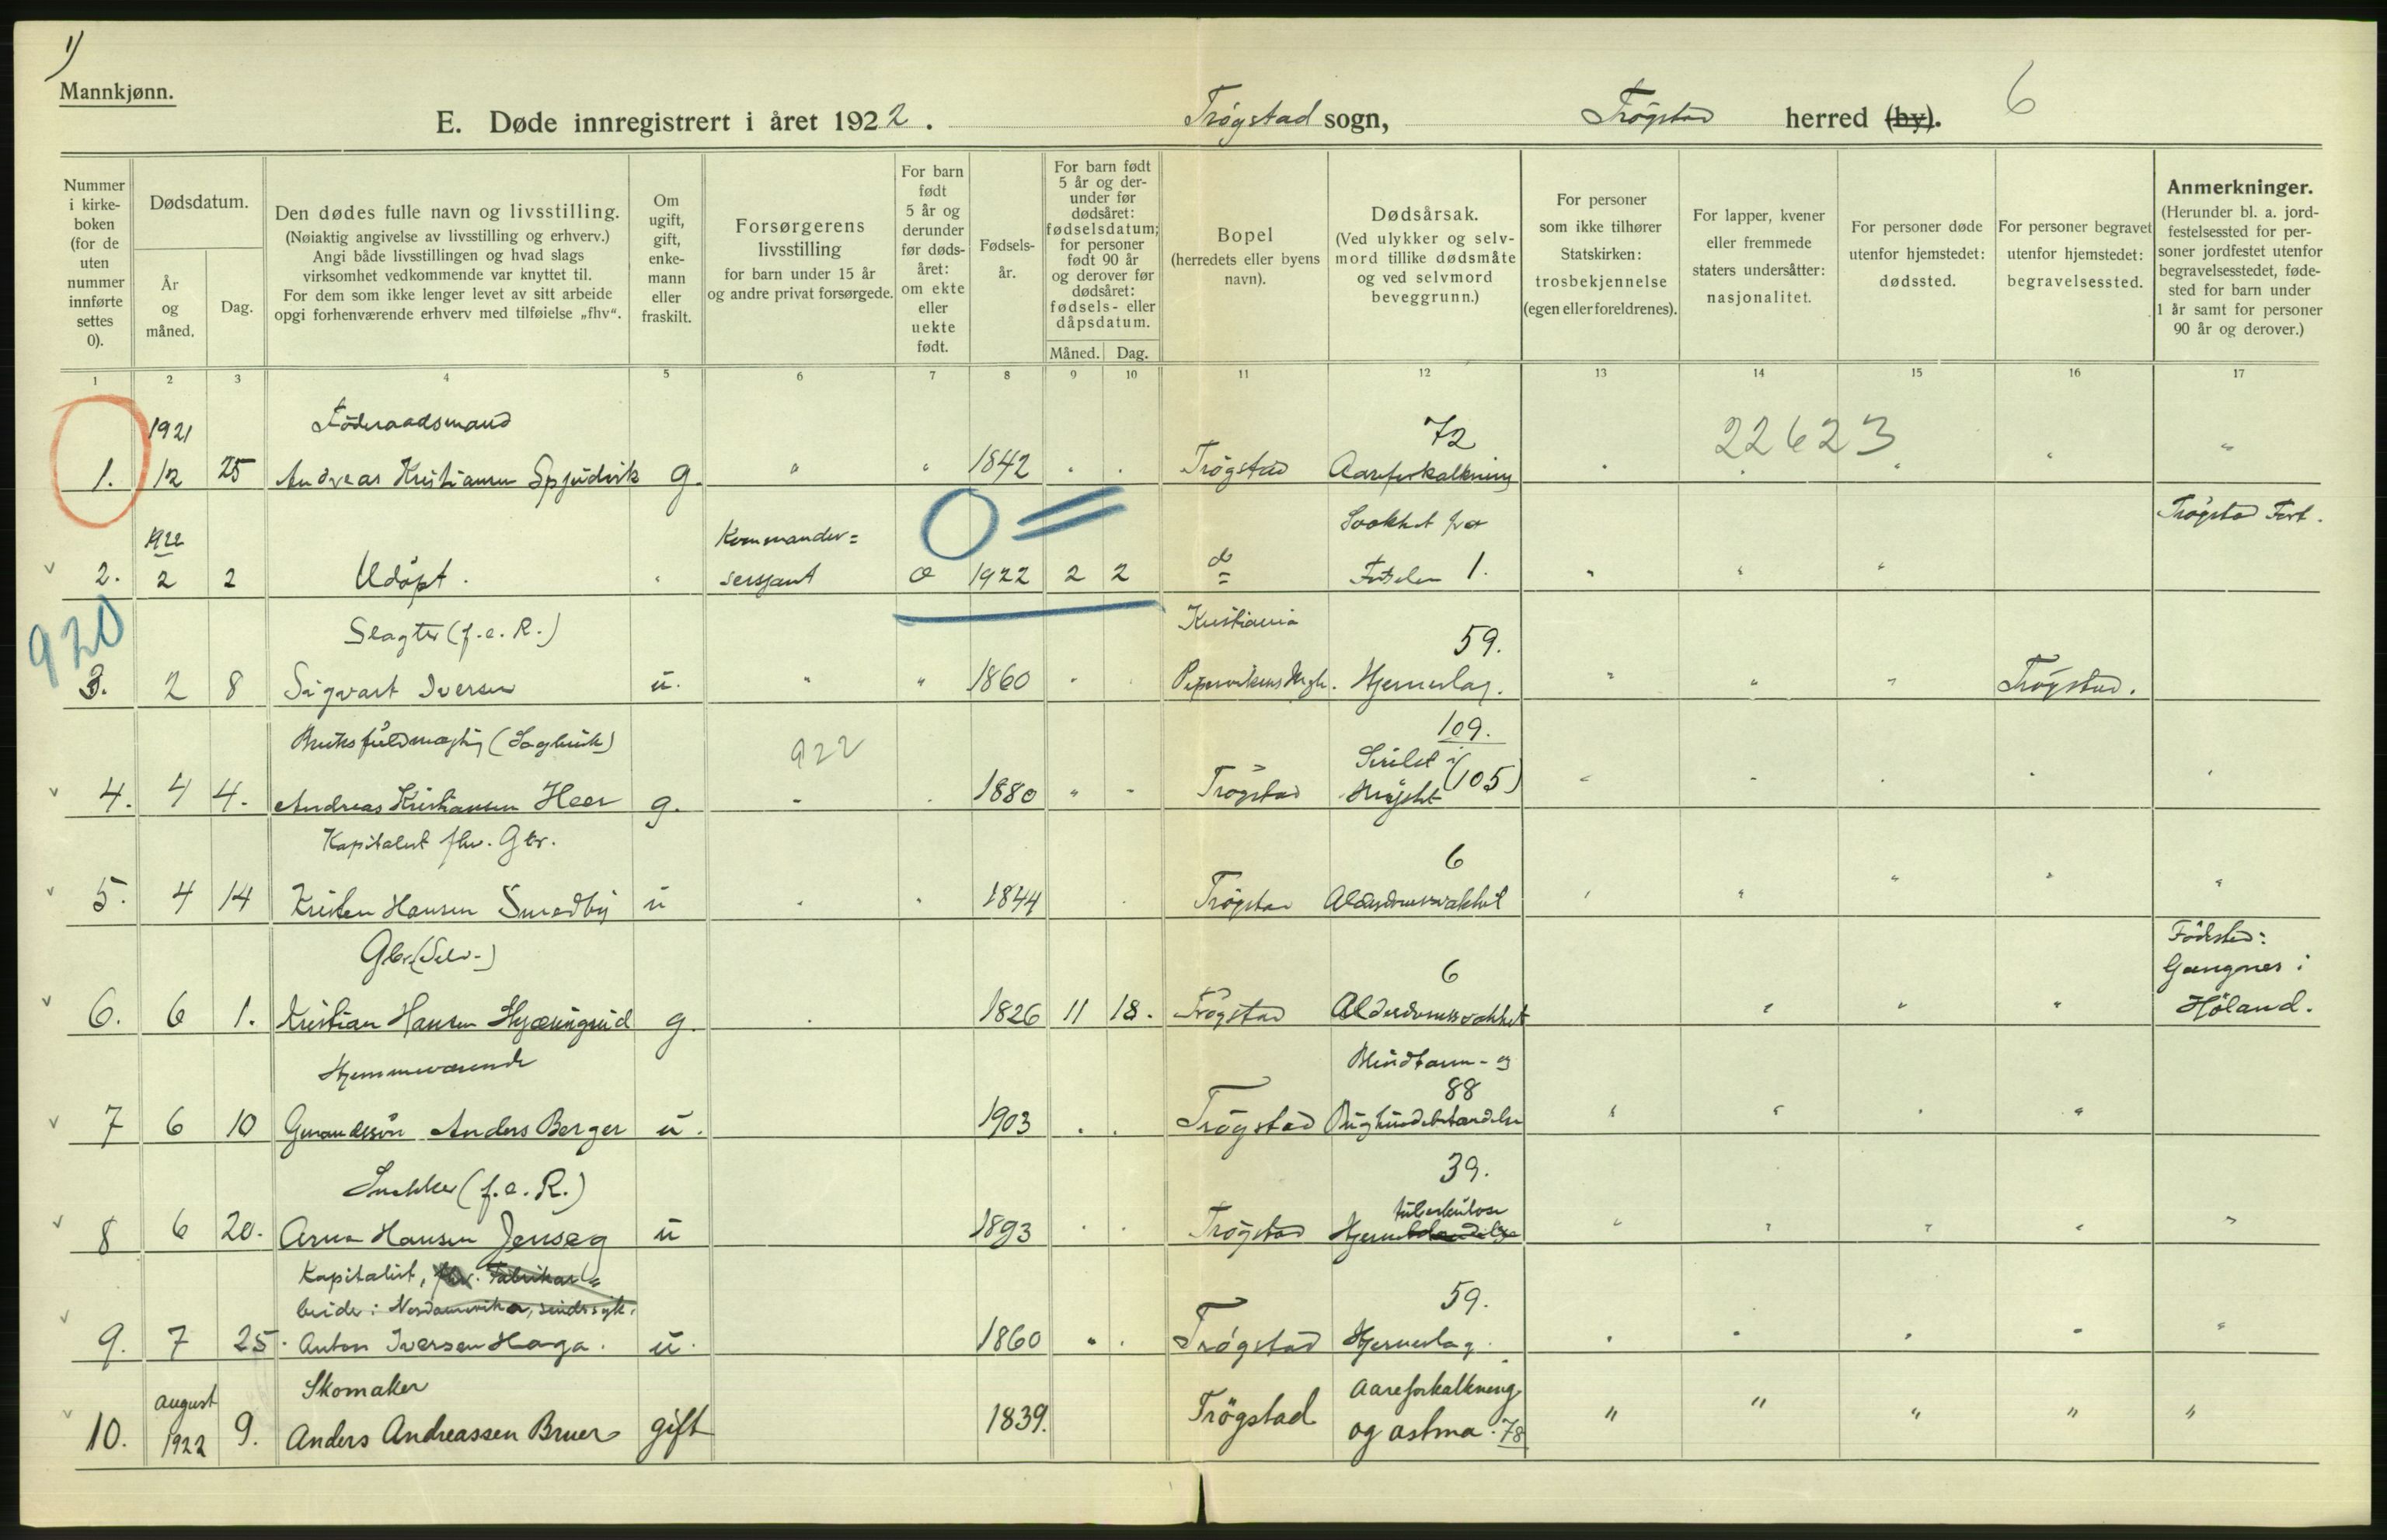 1)
Mannkjønn.
E. Døde innregistrert i året 1922. Trøgstad sogn, Trøgstad herred (by). 6
Nummer i kirke-boken (for de uten nummer innførte settes 0).
Dødsdatum.
År og måned.
Dag.
Den dødes fulle navn og livsstilling.
(Nøiaktig angivelse av livsstilling og erhverv.)
Angi både livsstillingen og hvad slags
virksomhet vedkommende var knyttet til.
For dem som ikke lenger levet av sitt arbeide
opgi forhenværende erhverv med tilføielse „fhv“.
Om ugift, gift, enke-mann eller fraskilt.
Forsørgerens livsstilling
for barn under 15 år
og andre privat forsørgede.
For barn født 5 år og derunder før døds-året: om ekte eller uekte født.
Fødsels-år.
For barn født 5 år og der-under før dødsåret: fødselsdatum; for personer født 90 år og derover før dødsåret: fødsels- eller dåpsdatum.
Måned. Dag.
Bopel
(herredets eller byens navn).
Dødsårsak.
(Ved ulykker og selv-mord tillike dødsmåte og ved selvmord beveggrunn.)
For personer som ikke tilhører Statskirken: trosbekjennelse (egen eller foreldrenes).
For lapper, kvener eller fremmede staters undersåtter: nasjonalitet.
For personer døde utenfor hjemstedet: dødssted.
For personer begravet utenfor hjemstedet: begravelsessted.
Anmerkninger.
(Herunder bl. a. jord-festelsessted for per-soner jordfestet utenfor begravelsesstedet, føde-sted for barn under 1 år samt for personer 90 år og derover.)
1 2 3 4 5 6 7 8 9 10 11 12 13 14 15 16 17
1921 Föderaadsmand 72 22623
1. 12 25 Andreas Kristiansen g. " " 1842 Trögstad Aareforkalkning
1922 Kommander= 0 = Trögstad Fort.
2. 2 2 Udöpt. sersjant 1922 2 2 1.
920
Slagter (f.e.R.) Kristiania 59.
3. 2 8 Sigvart Iversen u. " " 1860 Hjerneslag. Trögstad.
922 109.
4. 4 4. Andreas Kristiansen Heer g. 1880 Trögstad (105)
Kapitalist fhv. Gbr. 6
5. 4 14 Kristen Hansen Smedby u 1844 Trögstad Alderdomssvakhet
Gbr. (Selv-) 6 Födested:
6. 6 1. Kristian Hansen g. 1826 11 18. Trögstad Alderdomssvakhet i Höland.
Hjemmeværende Blindtarm- og
88
7 6 10 Anders Berger u. 1903 Trögstad Bughindebetændelse
Snekker (f.e.R.) 39.
tuberkulose
8 6 20. Arne Hansen u 1893 Trögstad Hjerne
Kapitalist, fhv. Fabrikar=
beider i Nordamerika, sindssyk. 59.
9. 7 25. Anton Iversen Haga. u. 1860 Trögstad Hjerneslag.
august Skomaker Aareforkalkning
10. 1922 9. Anders Andreassen Bruer gift 1839. Trögstad og astma. 78 " " " " "